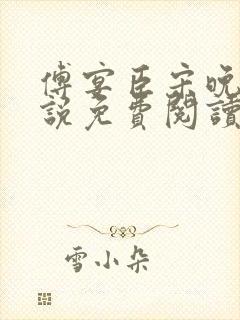 傅宴臣宋晚
説免費閱讀
雪小朵